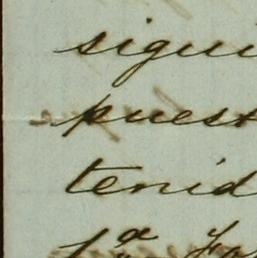 sigui
puest
tenid